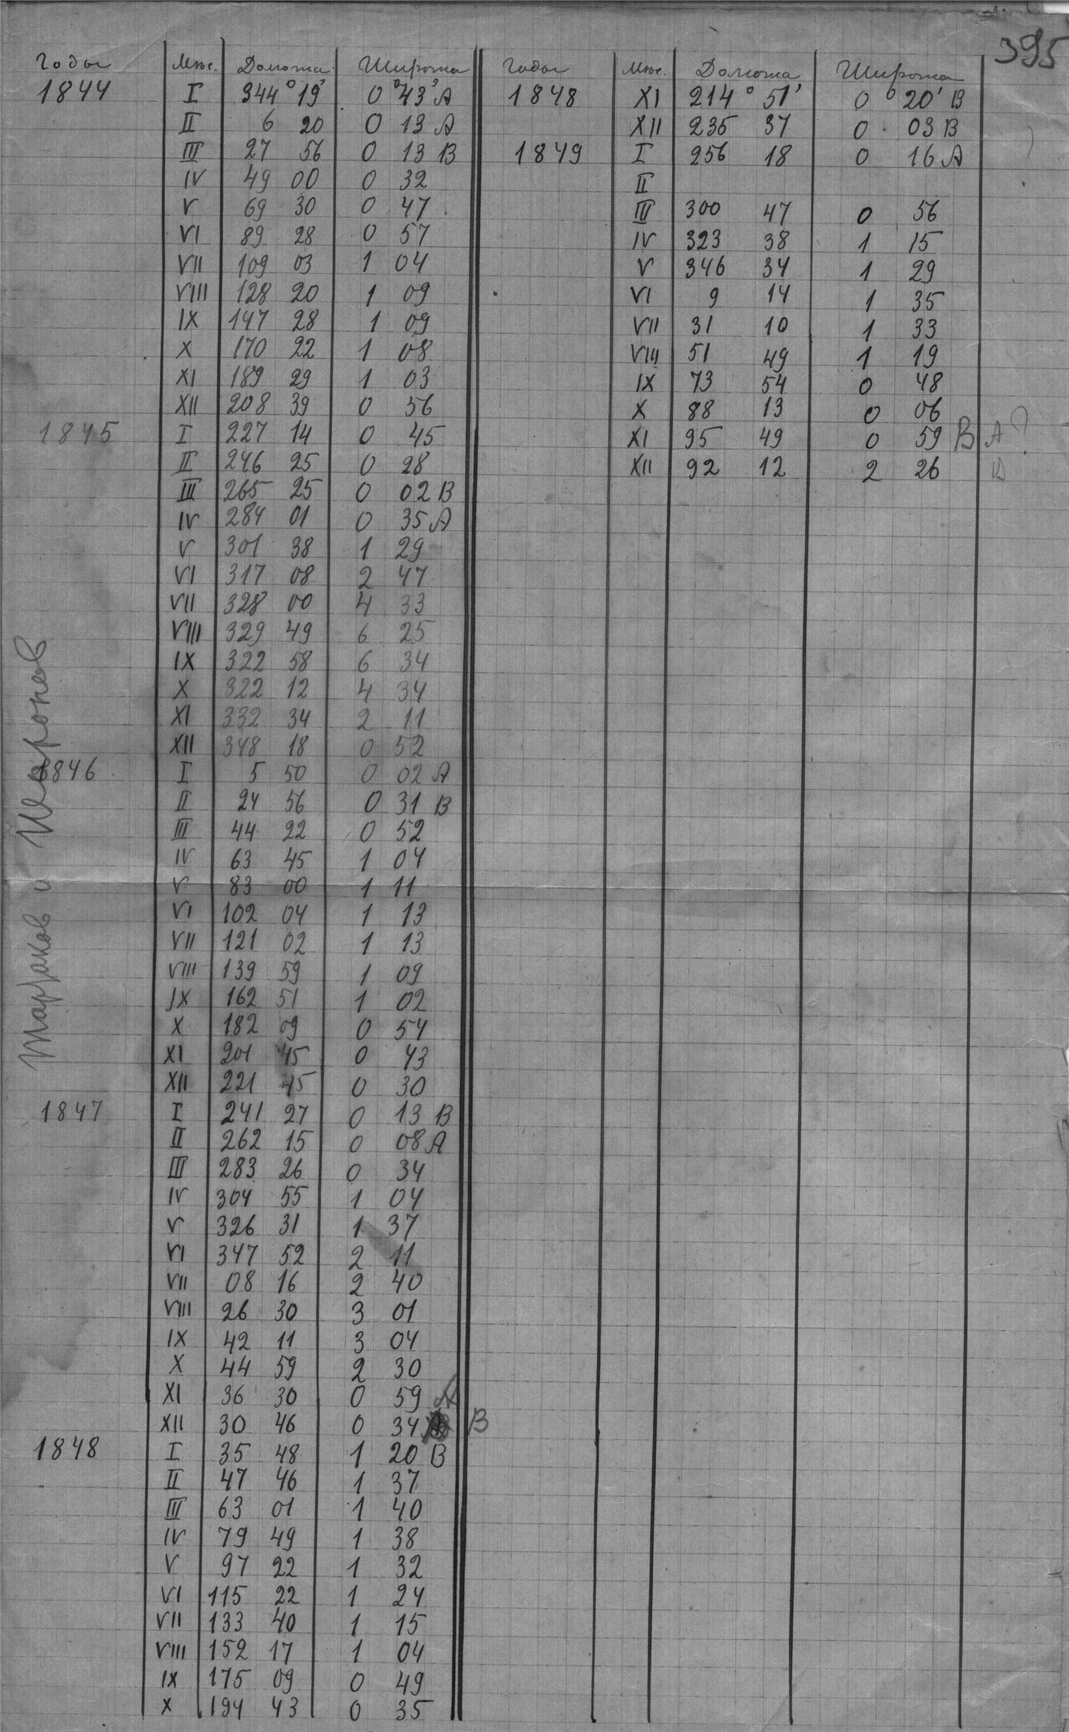 395
Годы Мъс. Долгота Широта
1844 I 344° 19' 0° 43' А
II 6 20 0 13 А
III 27 56 0 13 В
IV 49 00 0 32
V 69 30 0 47
VI 89 28 0 57
VII 109 03 1 04
VIII 128 20 1 09
IX 147 28 1 09
X 170 22 1 08
XI 189 29 1 03
XII 208 39 0 56
1845 I 227 14 0 45
II 246 25 0 28
III 265 25 0 02 В
IV 284 01 0 35 А
V 301 38 1 29
VI 317 08 2 47
VII 328 00 4 33
VIII 329 49 6 25
IX 322 58 6 34
X 322 12 4 34
XI 332 34 2 11
XII 348 18 0 52
1846 I 5 50 0 02 А
II 24 56 0 31 В
III 44 22 0 52
IV 63 45 1 04
V 83 00 1 11
VI 102 04 1 13
VII 121 02 1 13
VIII 139 59 1 09
IX 162 51 1 02
X 182 09 0 54
XI 201 45 0 43
XII 221 45 0 30
1847 I 241 27 0 13 В
II 262 15 0 08 А
III 283 26 0 34
IV 304 55 1 04
V 326 31 1 37
VI 347 52 2 11
VII 08 16 2 40
VIII 26 30 3 01
IX 42 11 3 04
X 44 59 2 30
XI 36 30 0 59 А
XII 30 46 0 34 В
1848 I 35 48 1 20 В
II 47 46 1 37
III 63 01 1 40
IV 79 49 1 38
V 97 22 1 32
VI 115 22 1 24
VII 133 40 1 15
VIII 152 17 1 04
IX 175 09 0 49
X 194 43 0 35
Годы Мъс. Долгота Широта
1848 XI 214° 51' 0° 20' В
XII 235 37 0 03 В
1849 I 256 18 0 16 А
II
III 300 47 0 56
IV 323 38 1 15
V 346 34 1 29
VI 9 14 1 35
VII 31 10 1 33
VIII 51 49 1 19
IX 73 54 0 48
X 88 13 0 06
XI 95 49 0 59 В А?
XII 92 12 2 26
и Шаронов